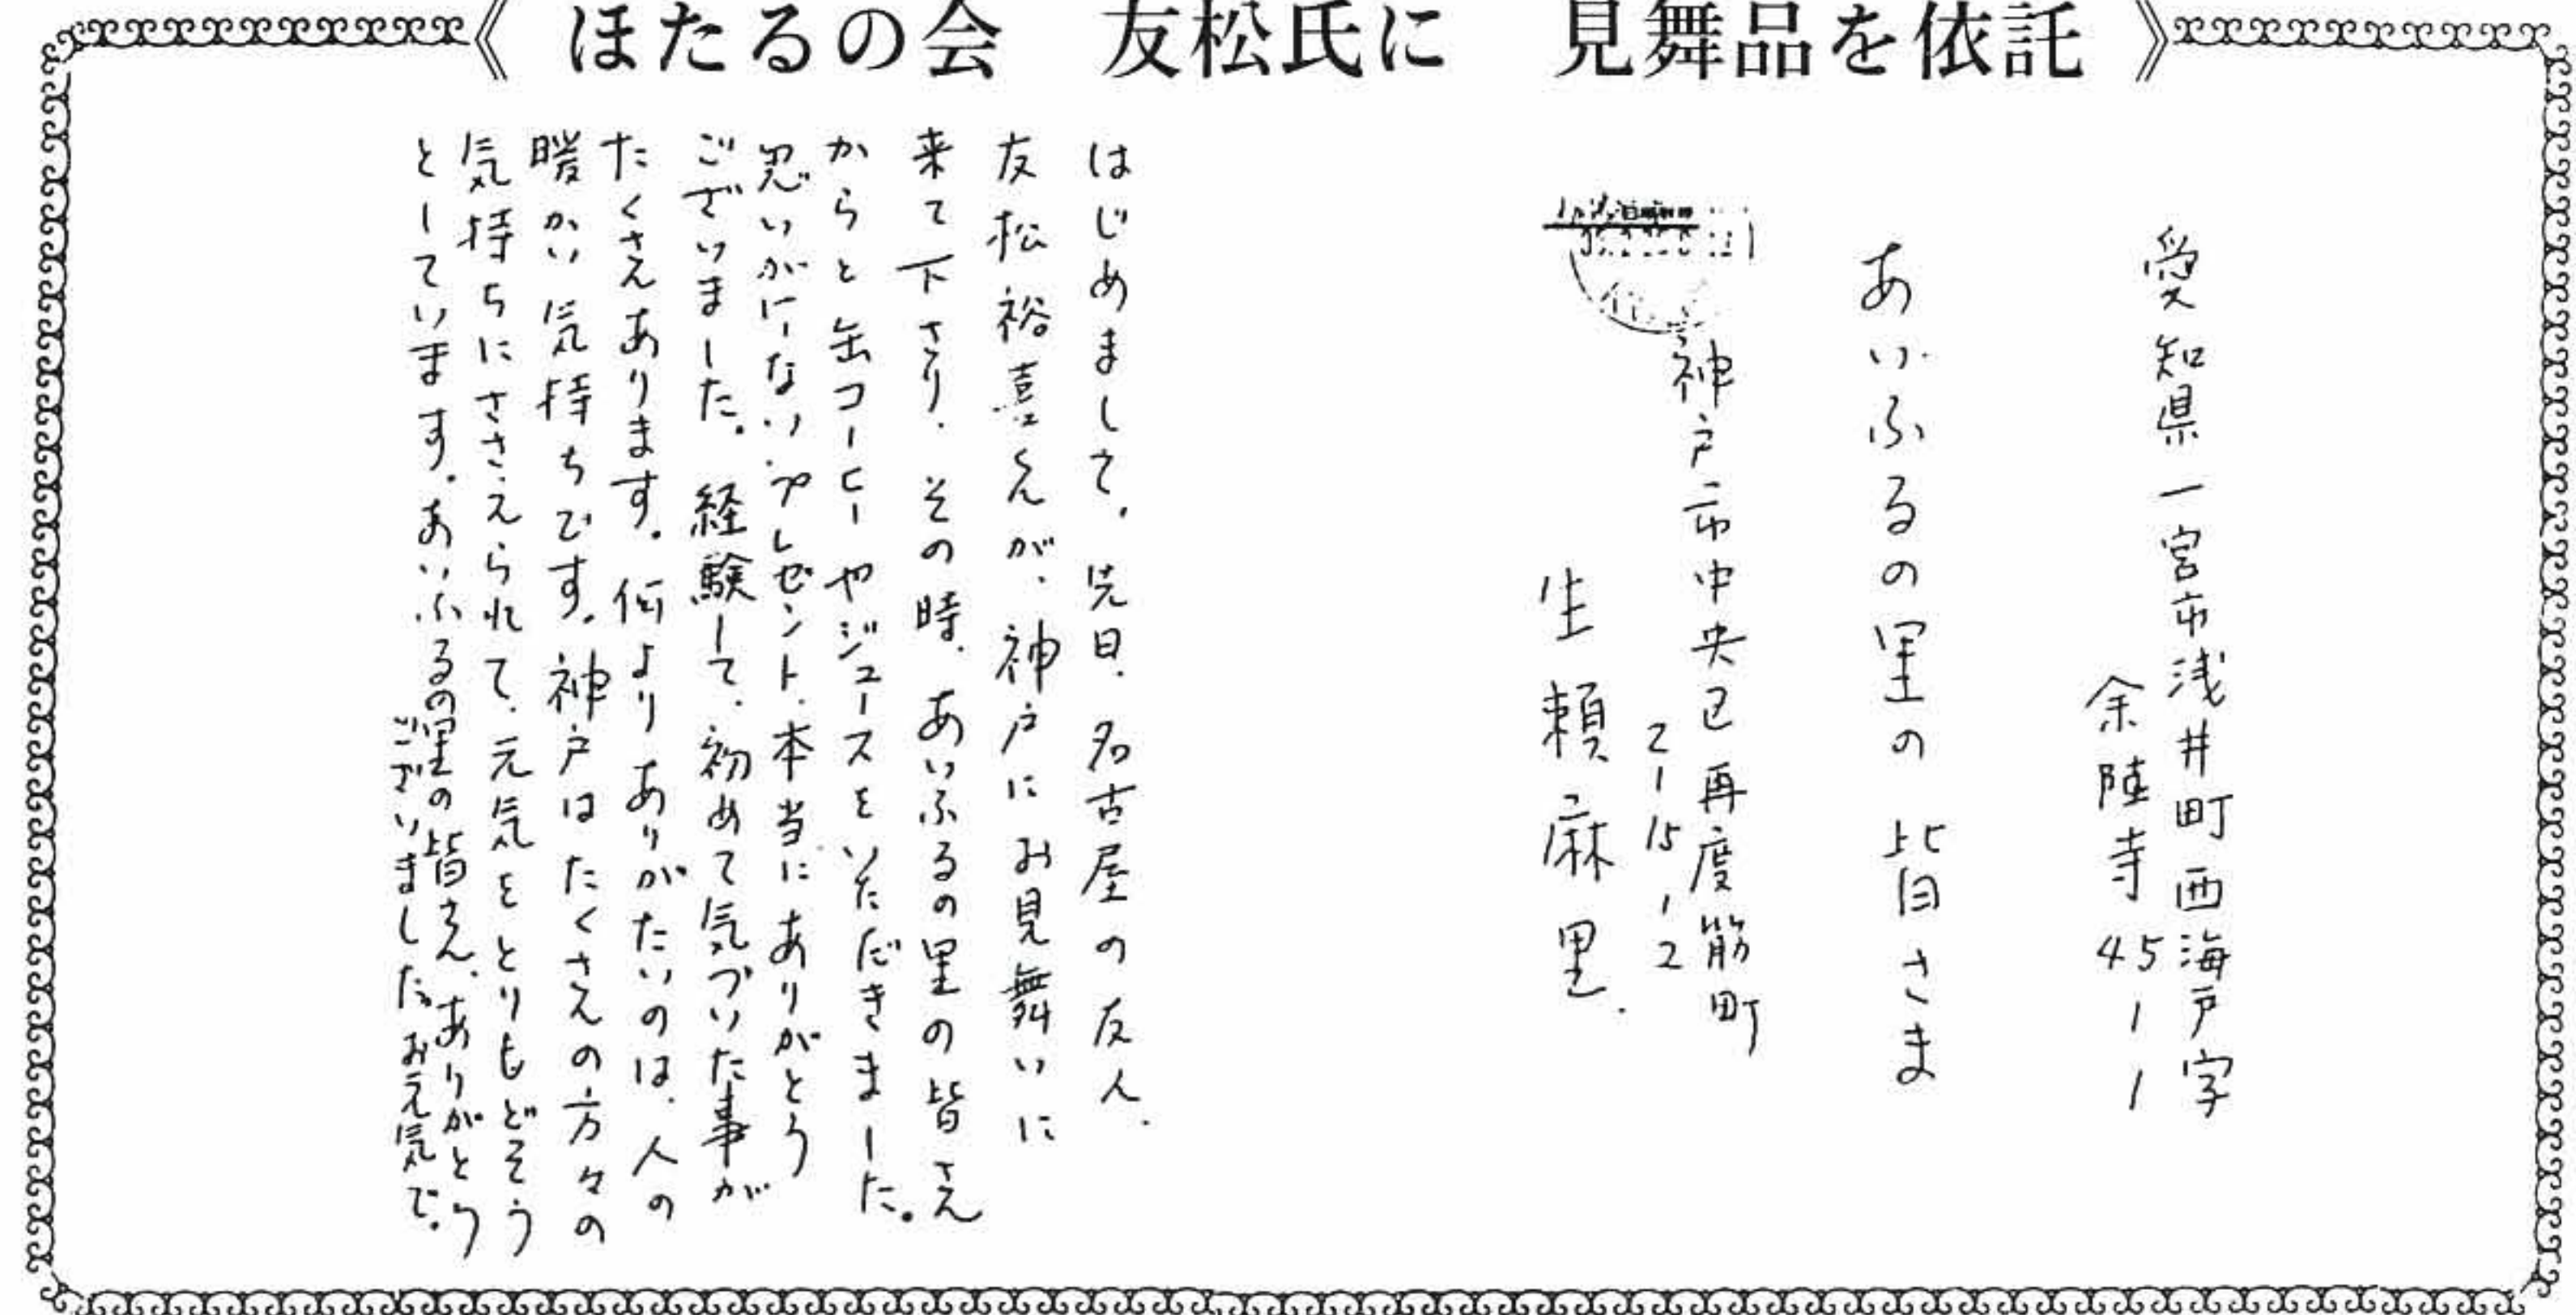 《 ほたるの会　友松氏に　見舞品を依託 》
愛知県一宮市浅井町西海戸字
余陸寺45-1-1
あいふるの里の皆さま
神戸市中央区再度筋町
2-15-2
生頼麻里
はじめまして。先日、名古屋の友人、
友松裕喜さんが、神戸にお見舞いに
来て下さり、その時、あいふるの里の皆さん
からと缶コーヒーやジュースをいただきました。
思いがけないプレゼント、本当にありがとう
ございました。経験して、初めて気づいた事が
たくさんあります。何よりありがたいのは、人の
暖かい気持ちです。神戸はたくさんの方々の
気持ちにささえられて、元気をとりもどそう
としています。あいふるの里の皆さん、ありがとう
ございました。お元気で。